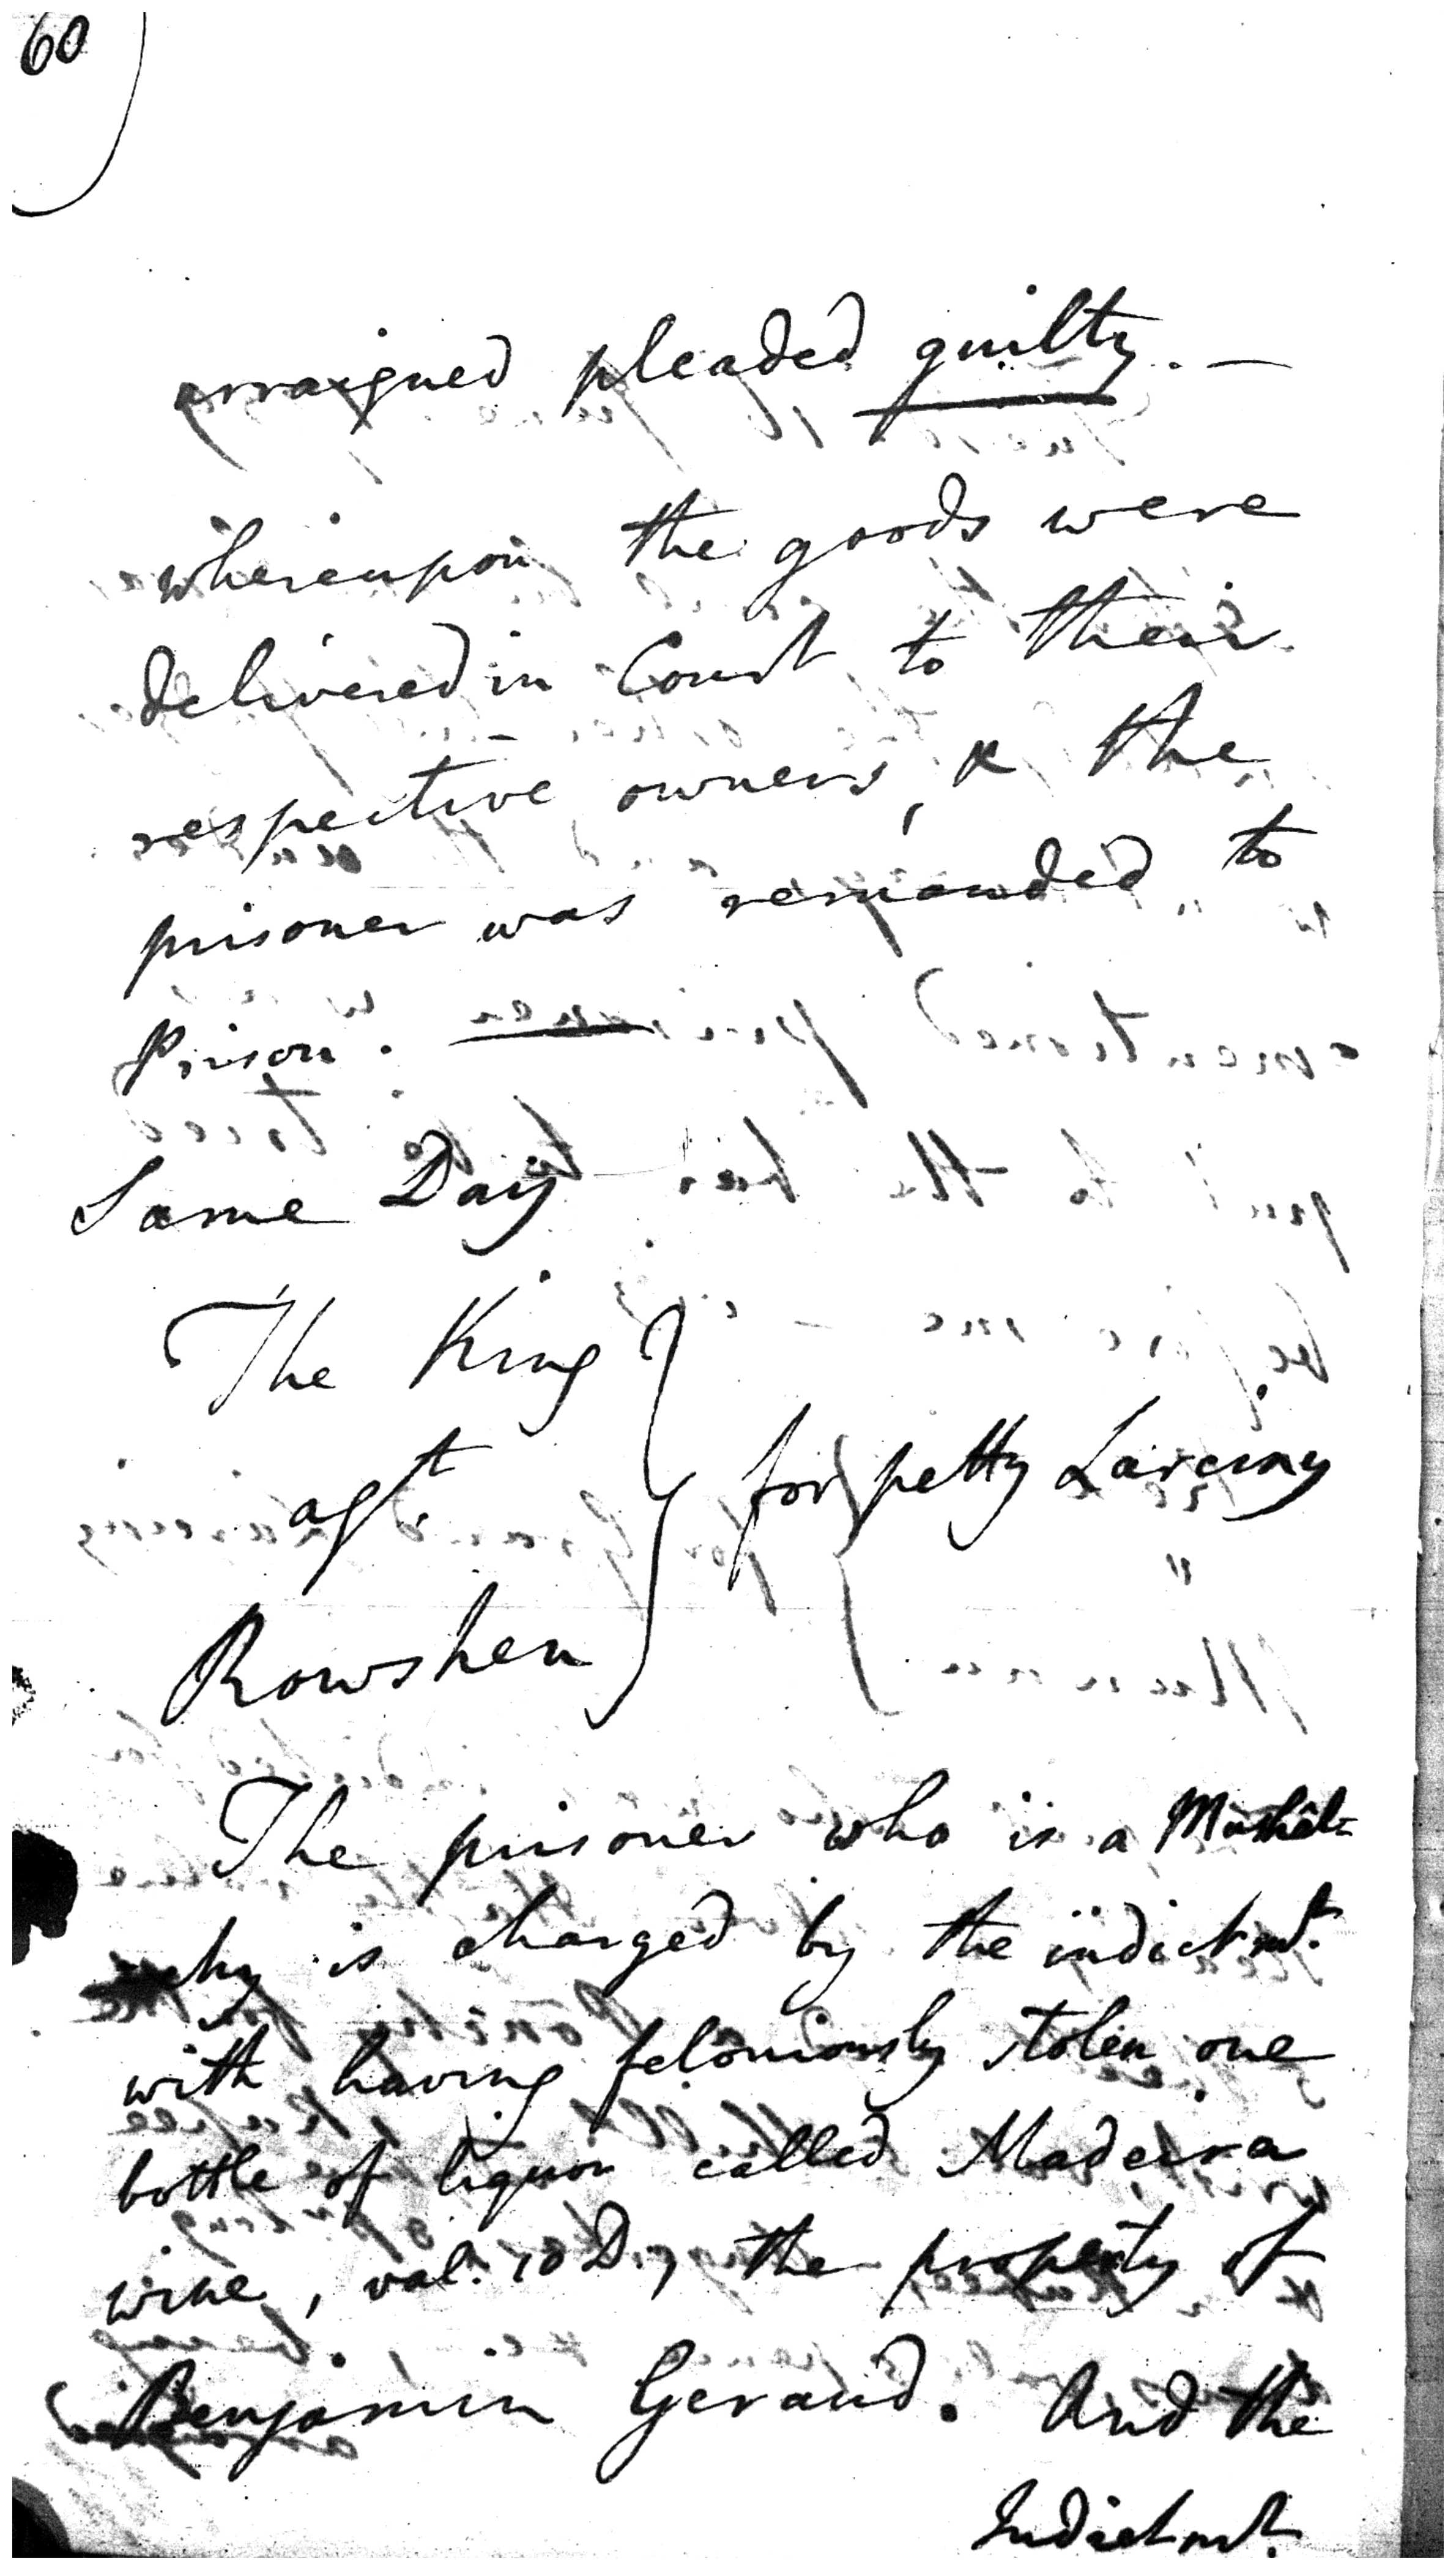 60
arraigned pleaded guilty. —
whereupon the goods were
delivered in Court to their
respective owners, & the
prisoner was remanded to
Prison. —
Same Day
The King
agt.
Rowshen
} for petty Larciny
The prisoner who is a Mashâl=
chy is charged by the indictmt.
with having feloniously stolen one
bottle of liquor called Madeira
wine, val. 10 D., the property of
Benjamin Geraud. And the
Indictmt.